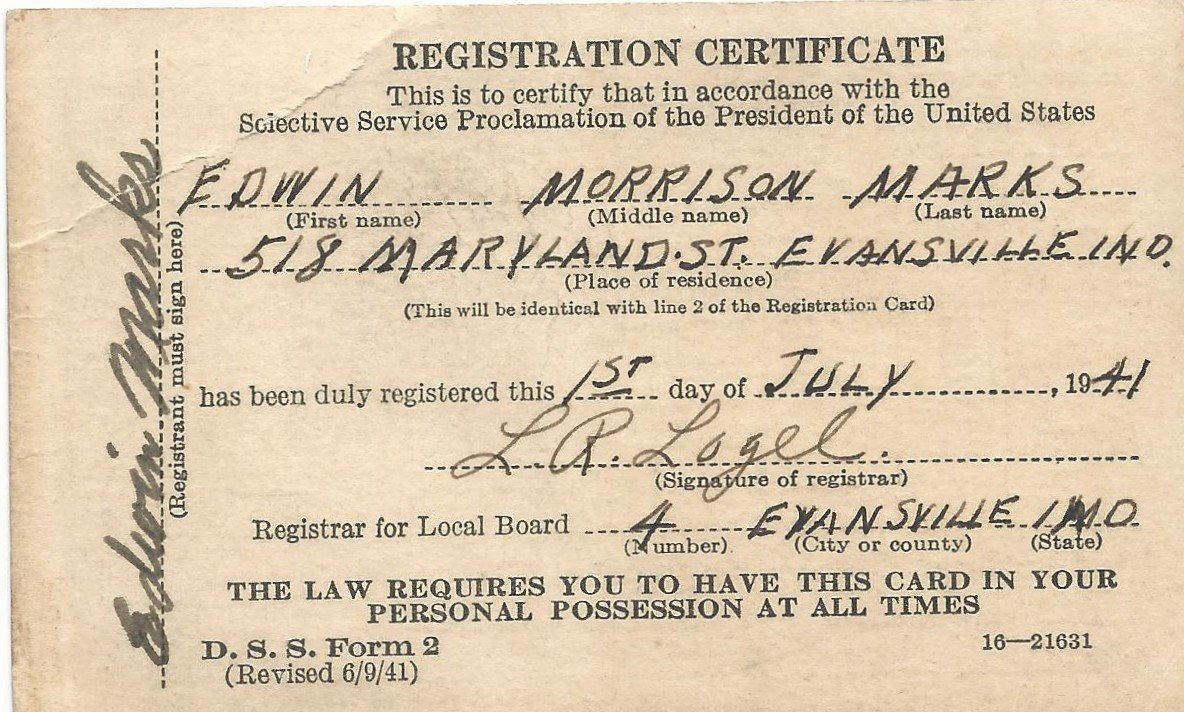 REGISTRATION CERTIFICATE
This is to certify that in accordance with the
Selective Service Proclamation of the President of the United States
EDWIN MORRISON MARKS
(First name) (Middle name) (Last name)
518 MARYLAND. ST. EVANSVILLE IND.
(Place of residence)
(This will be identical with line 2 of the Registration Card)
has been duly registered this 1ST day of JULY, 1941
L. R. Logel.
(Signature of registrar)
Registrar for Local Board 4 EVANSVILLE IND
(Number) (City or county) (State)
THE LAW REQUIRES YOU TO HAVE THIS CARD IN YOUR
PERSONAL POSSESSION AT ALL TIMES
D. S. S. Form 2 16—21631
(Revised 6/9/41)
Edwin Marks
(Registrant must sign here)